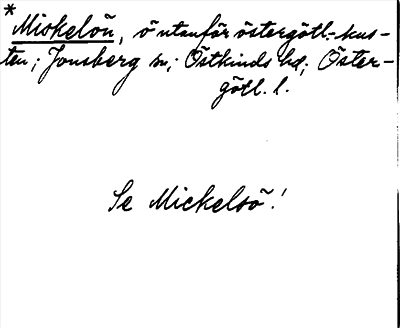 * Miskelön, ö utanför östergötl.-kus-
ten; Jonsberg sn; Östkinds hd; Öster-
götl. l.
Se Mickelsö!